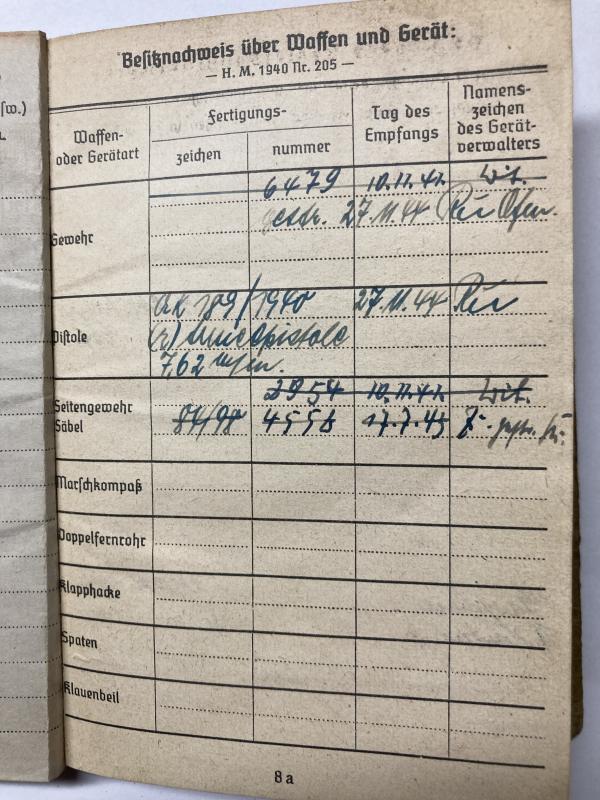 sw.)
Besitznachweis über Waffen und Gerät:
— H. M. 1940 Nr. 205 —
Waffen- oder Gerätart
Fertigungs-
zeichen
nummer
Tag des Empfangs
Namens-
zeichen
des Gerät-
verwalters
6479 10.11.41. Wit.
Gewehr
gestr. 27.11.44
Pistole
189/1940 27.11.44
(r)
7,62 m/m.
3954 10.11.41. Wit.
Seitengewehr
Säbel
84/98 4556 17.7.43
Marschkompaß
Doppelfernrohr
Klapphacke
Spaten
Klauenbeil
8a